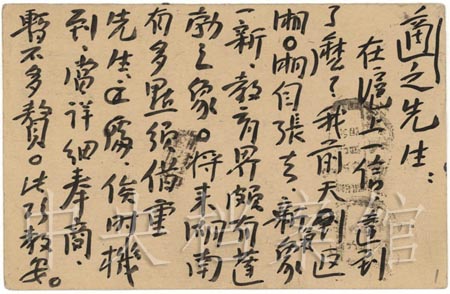 適之先生：
在滬上一信達到
了麼？我前天返
湘。湘自張去，氣象
一新，教育界頗有蓬
勃之象。將來湖南
有多點須借重
先生之處，俟時機
到，當詳細奉商，
暫不多贅。此頌教安。
中央档案馆